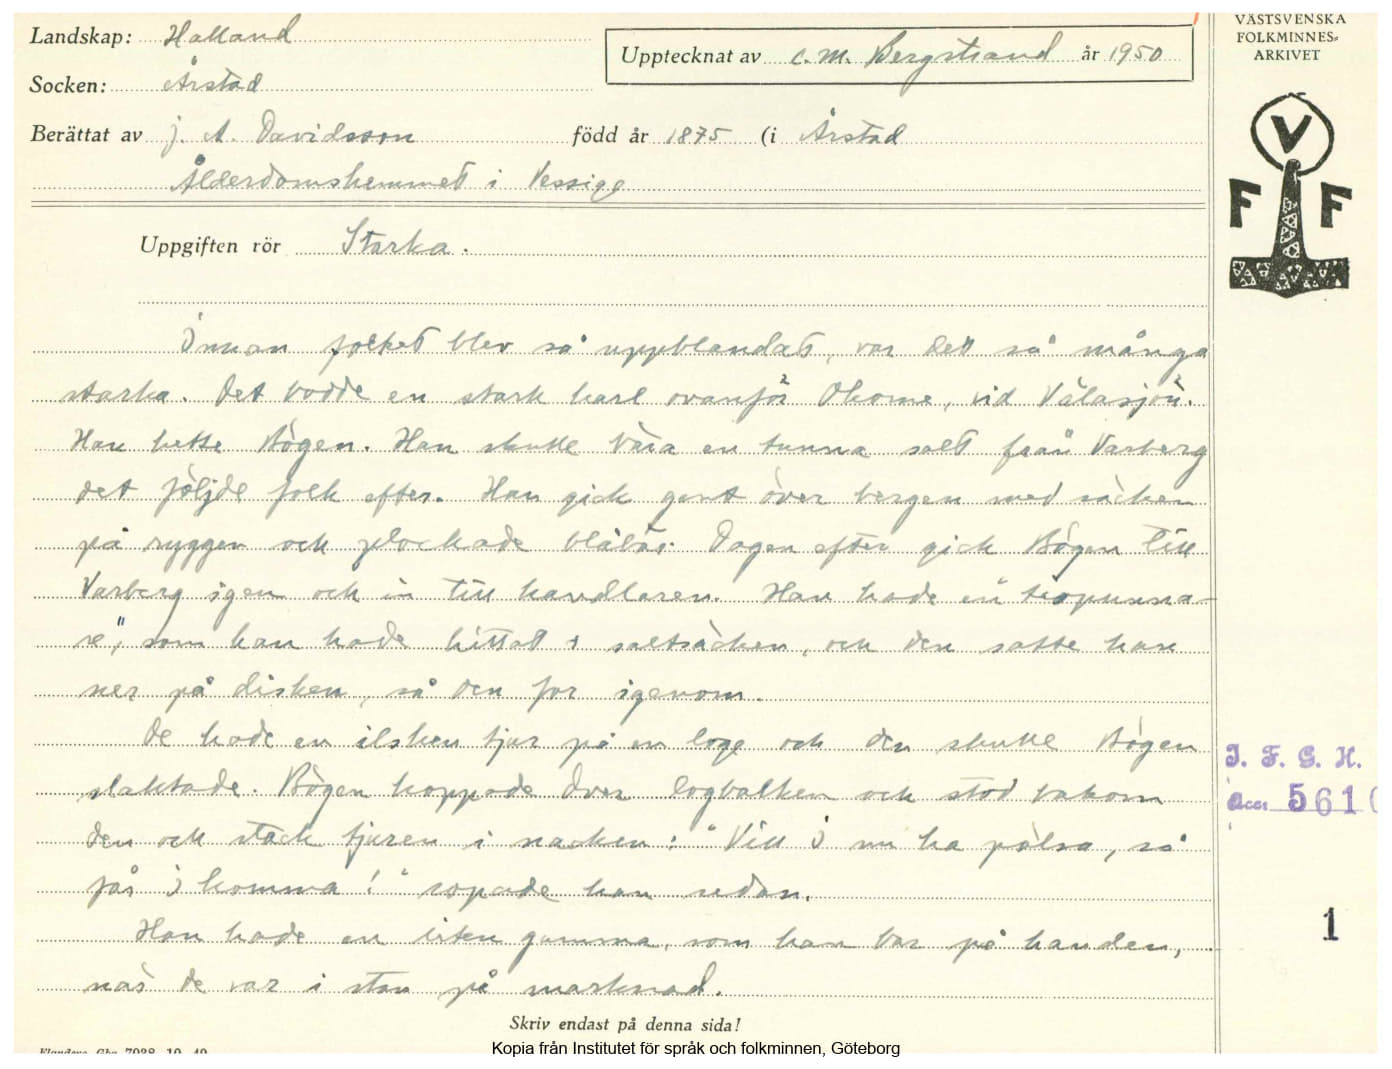 Landskap: Halland
Upptecknat av C. M. Bergstrand år 1950
VÄSTSVENSKA
FOLKMINNES-
ARKIVET
Socken: Årstad
Berättat av J. A. Davidsson född år 1875 (i Årstad
Ålderdomshemmet i Vessige
V
F F
Uppgiften rör Starka.
Innan folket blev så uppblandat, var det så många
starka. Det bodde en stark karl ovanför Okome, vid Välasjön.
Han hette Bögen. Han skulle bära en tunna salt från Varberg
det följde folk efter. Han gick gent över bergen med säcken
på ryggen och plockade blåbär. Dagen efter gick Bögen till
Varberg igen och in till handlaren. Han hade en
som han hade hittat i saltsäcken, och den satte han
ner på disken, så den for igenom.
De hade en ilsken tjur på en loge och den skulle Bögen
slaktade. Bögen hoppade över logbalken och stod bakom
den och stack tjuren i nacken: "Vill I nu ha pölsa, så
får I komma!" ropade han sedan.
Han hade en liten gumma, som han bar på handen,
när de var i stan på marknad.
I. F. G. H.
Acc. 5610
1
Skriv endast på denna sida!
Kopia från Institutet för språk och folkminnen, Göteborg